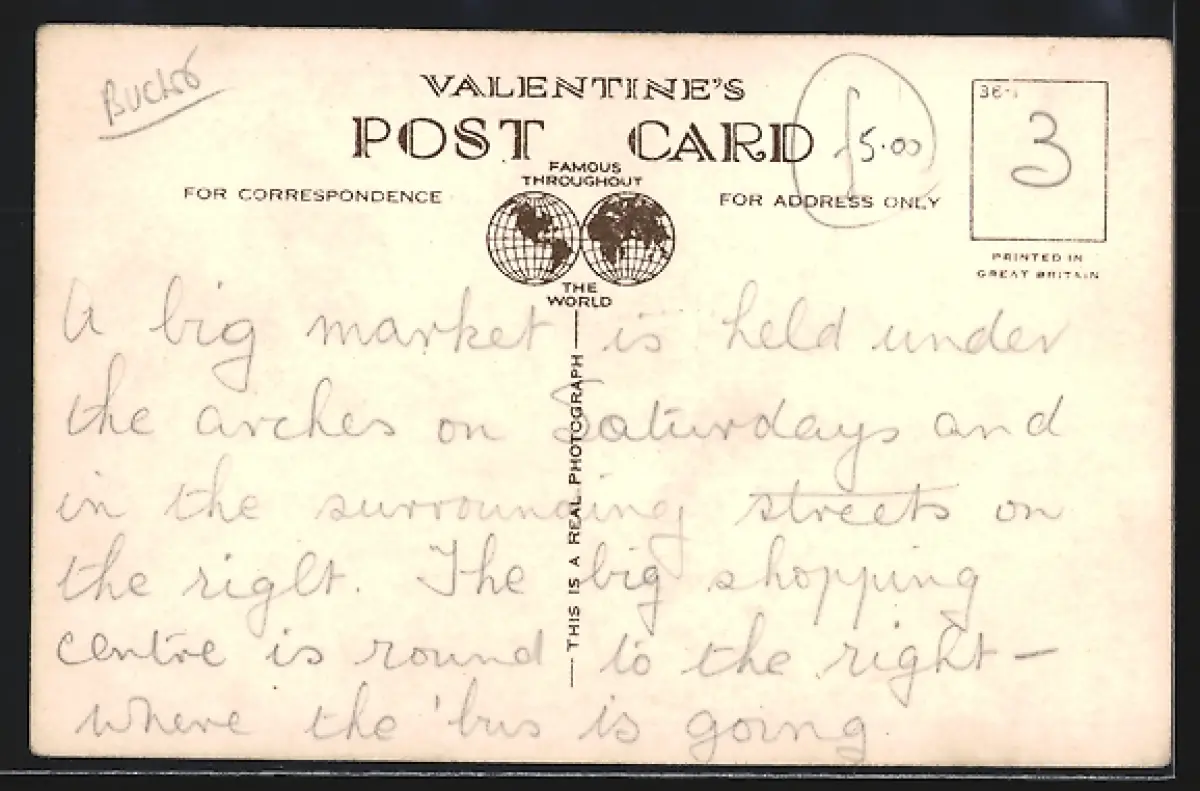 VALENTINE'S
POST CARD
£5.00
36-
3
FAMOUS
THROUGHOUT
FOR CORRESPONDENCE
FOR ADDRESS ONLY
THE
WORLD
PRINTED IN
GREAT BRITAIN
THIS IS A REAL PHOTOGRAPH
A big market is held under
the arches on Saturdays and
in the surrounding streets on
the right. The big shopping
centre is round to the right –
where the 'bus is going